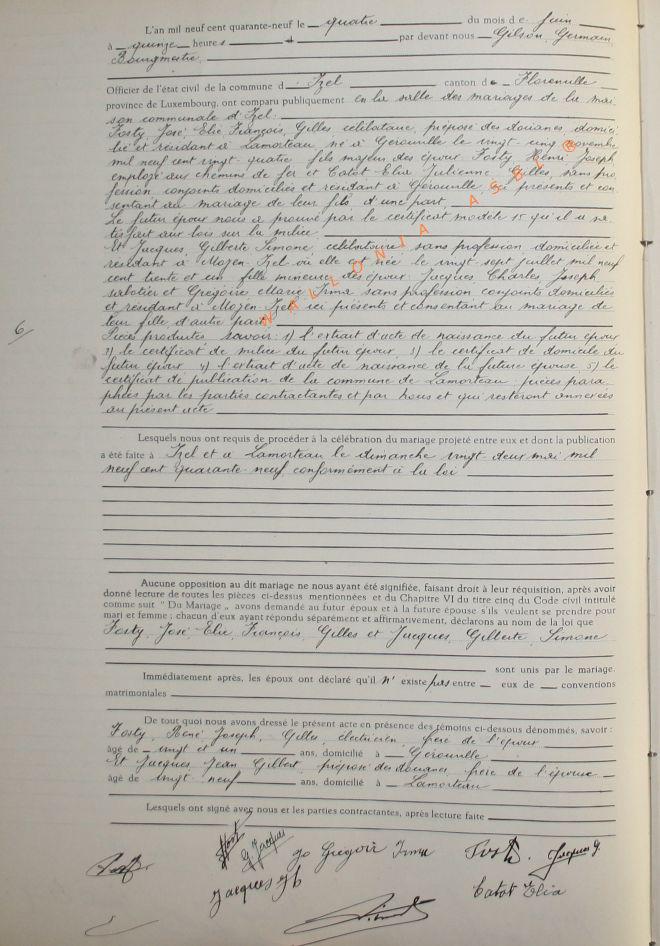 L'an mil neuf cent quarante-neuf le quatre du mois de Juin
à quinze heures et par devant nous Gilson, Germain
Bourgmestre.
Officier de l'état civil de la commune d Izel canton de Florenville
province de Luxembourg, ont comparu publiquement en la salle des mariages de la mai
son communale d'Izel.
Fosty, José, Elie, François, Gilles, célibataire, préposé des douanes, domici
lié et résidant à Lamorteau né à Gérouville le vingt cinq novembre
mil neuf cent vingt quatre fils majeur des époux Fosty, Henri Joseph
employé aux chemins de fer et Catot Elia Julienne Gilles, sans pro
fession conjoints domiciliés et résidant à Gérouville, ici présents et con
sentant au mariage de leur fils, d'une part,
Le futur époux nous a prouvé par le certificat modèle 15 qu'il a sa
tisfait aux lois sur la milice
Et Jacques, Gilberte Simone, célibataire, sans profession domiciliée et
résidant à Moyen-Izel où elle est née le vingt sept juillet mil neuf
cent trente et un fille mineure des époux Jacques Charles, Joseph
sabotier et Grégoire Marie Irma sans profession conjoints domiciliés
et résidant à Moyen-Izel ici présents et consentant au mariage de
leur fille d'autre part
WALLONIA ASBL ©
6/
Pièces produites savoir: 1) l'extrait d'acte de naissance du futur époux
2) le certificat de milice du futur époux, 3) le certificat de domicile du
futur époux 4) l'extrait d'acte de naissance de la future épouse 5) le
certificat de publication de la commune de Lamorteau pièces para
phées par les parties contractantes et par nous et qui resteront annexées
au présent acte
Lesquels nous ont requis de procéder à la célébration du mariage projeté entre eux et dont la publication
a été faite à Izel et à Lamorteau le dimanche vingt-deux mai mil
neuf cent quarante-neuf, conformément à la loi
Aucune opposition au dit mariage ne nous ayant été signifiée, faisant droit à leur réquisition, après avoir
donné lecture de toutes les pièces ci-dessus mentionnées et du Chapitre VI du titre cinq du Code civil intitulé
comme suit " Du Mariage „ avons demandé au futur époux et à la future épouse s'ils veulent se prendre pour
mari et femme ; chacun d'eux ayant répondu séparément et affirmativement, déclarons au nom de la loi que
Fosty, José, Elie, François, Gilles et Jacques, Gilberte, Simone
sont unis par le mariage.
Immédiatement après, les époux ont déclaré qu'il n' existe pas entre eux de conventions
matrimoniales
De tout quoi nous avons dressé le présent acte en présence des témoins ci-dessous dénommés, savoir :
Fosty, René Joseph, Gilles, électricien, frère de l'époux
âgé de vingt et un ans, domicilié à Gérouville
Et Jacques, Jean Gilbert, préposé des douanes, frère de l'épouse
âgé de vingt neuf ans, domicilié à Lamorteau
Lesquels ont signé avec nous et les parties contractantes, après lecture faite
G. Jacques
Gregoir Irma
Jacques G
Catot Elia